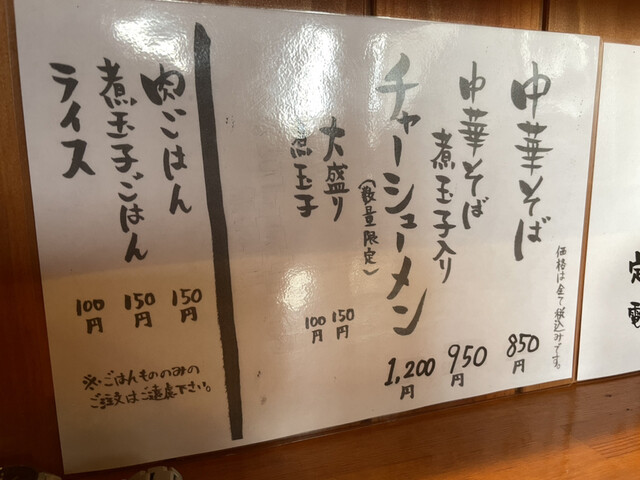 中華そば 850円
価格は全て税込みです。
中華そば
煮玉子入り 950円
チャーシューメン 1,200円
(数量限定)
大盛り 150円
煮玉子 100円
肉ごはん 150円
煮玉子ごはん 150円
ライス 100円
※ごはんもののみの
ご注文はご遠慮下さい。